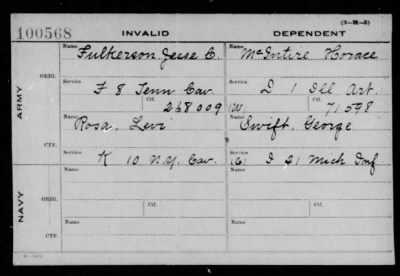 (3-M-3)
100568 INVALID DEPENDENT
Name Fulkerson, Jesse C. Name McIntire Horace
ORIG.
Service F 8 Tenn Cav. Service D 1 Ill Art.
Ctf. 268009 (W) Ctf. 71598
ARMY
Name Rosa, Levi Name Swift, George
CTF.
Service K 10 N.Y. Cav. Service (C) I 21 Mich Inf
Name Name
ORIG. Ctf. Ctf.
NAVY
Name Name
CTF.